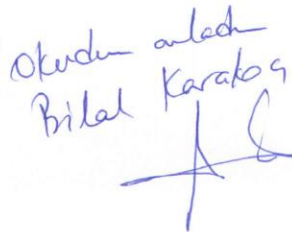 Okudum anladım
Bilal Karakoç